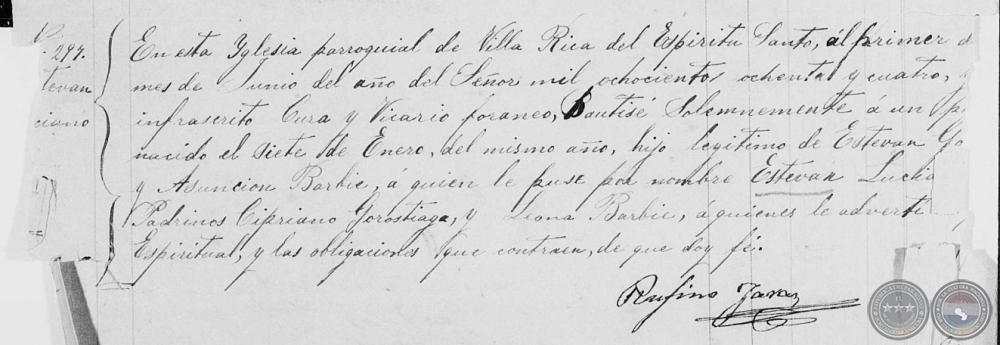 297.
tevan
ciano
En esta Iglesia parroquial de Villa Rica del Espiritu Santo, al primer d
mes de Junio del año del Señor mil ochocientos ochenta y cuatro, y
infrascrito Cura y Vicario foraneo, Bautisé Solemnemente á un p
nacido el siete de Enero, del mismo año, hijo legitimo de Estevan Go
y Asuncion Barbie, á quien le puse por nombre Estevan Lucia
Padrinos Cipriano Gorostiaga, y Leona Barbie, á quienes le adverti
Espiritual, y las obligaciones que contraen, de que doy fé.
Rufino Jara